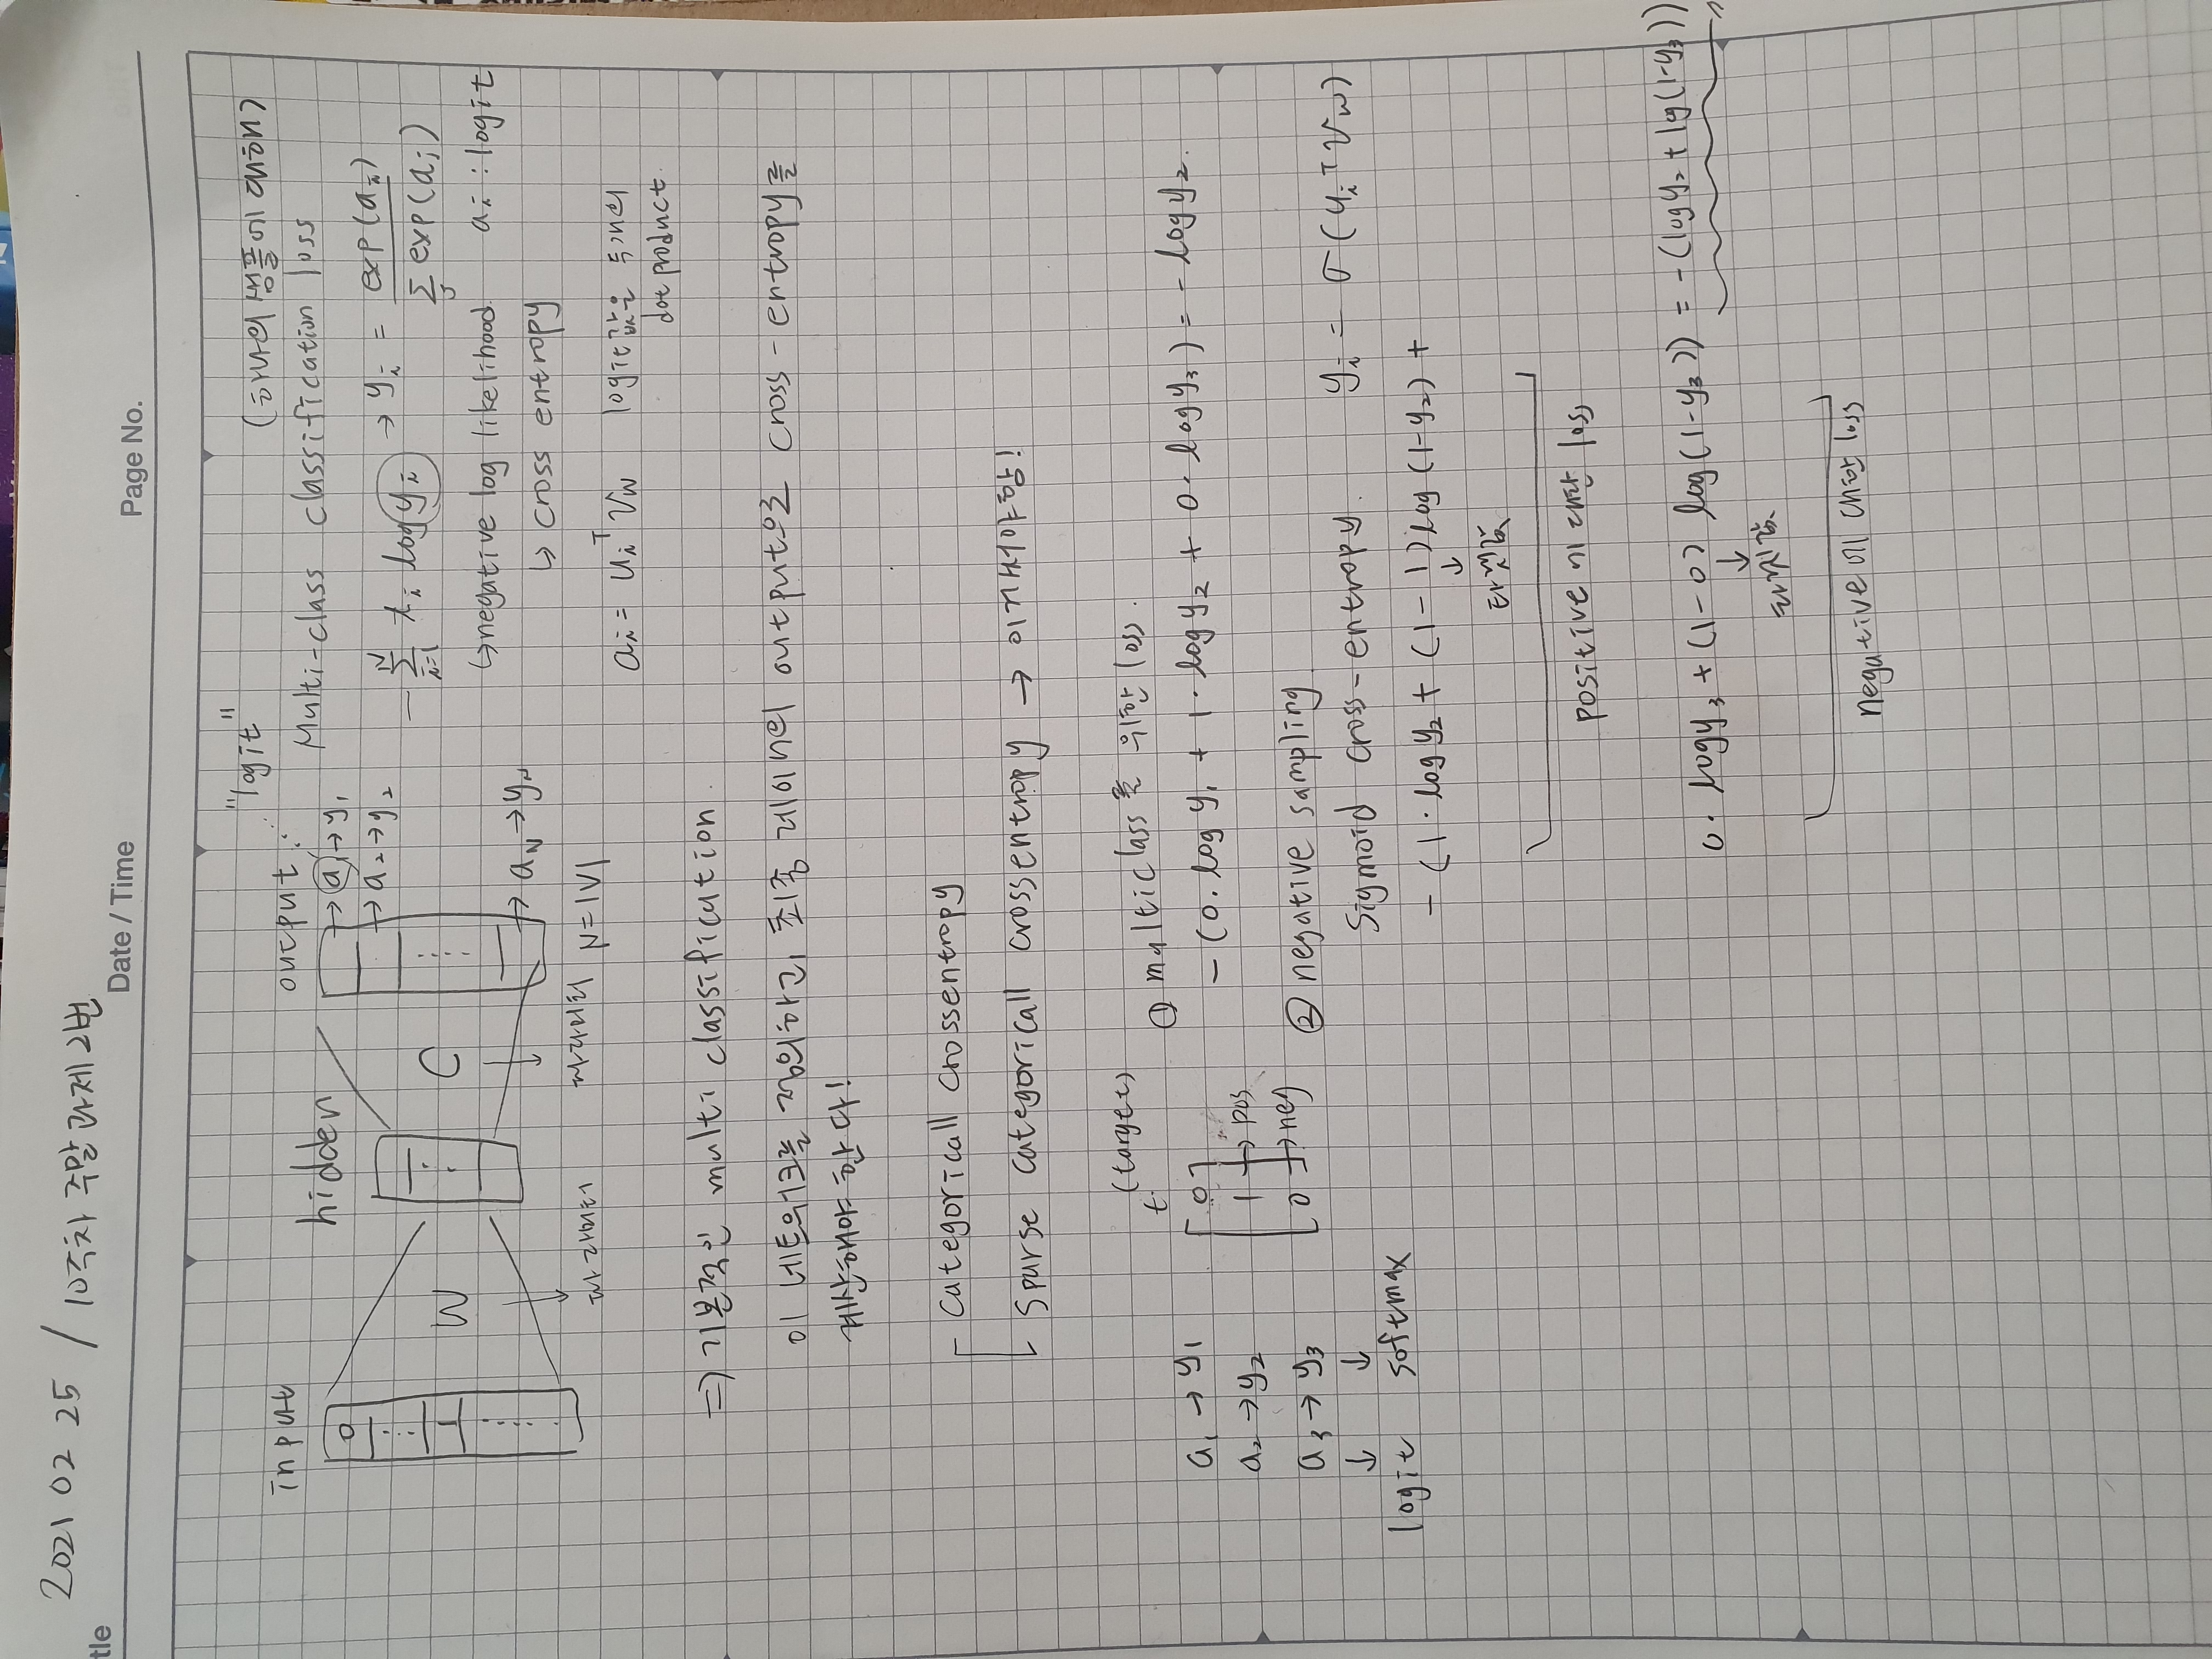 2021 02 25 / 10주차 주말 과제 2번
tle
Date / Time
Page No.
"logit"
(하나의 샘플에 대해)
input
hidden
output
Multi-class classification loss
0
⋮
1
⋮
W
C
→ a₁ → y₁
→ a₂ → y₂
→ a_N → y_N
- Σ_{i=1}^{N} t_i log y_i → y_i = exp(a_i) / Σ_j exp(a_j)
↳ negative log likelihood
a_i : logit
↳ cross entropy
파라미터
파라미터
N=|V|
a_i = u_i^T v_w
logit값은 두개의
dot product.
⇒ 기본적인 multi classification.
이 네트워크를 정의하고, 최종 레이어의 output으로 cross-entropy를
계산해야 한다!
categoricall crossentropy
sparse categoricall crossentropy → 이거써야함!
(target)
t
a₁ → y₁
a₂ → y₂
a₃ → y₃
↓ ↓
logit softmax
[0
1 → pos
0] → neg
① multiclass를 위한 loss.
- (0. log y₁ + 1 · log y₂ + 0 · log y₃) = - log y₂.
② negative sampling
sigmoid cross-entropy. y_i = σ(u_i^T v_w)
- (1 · log y₂ + (1-1) log (1-y₂) +
↓
타겟값
positive에 대한 loss
0. log y₃ + (1-0) log (1-y₃)) = -(log y₂ + log(1-y₃))
↓
타겟값.
negative에 대한 loss